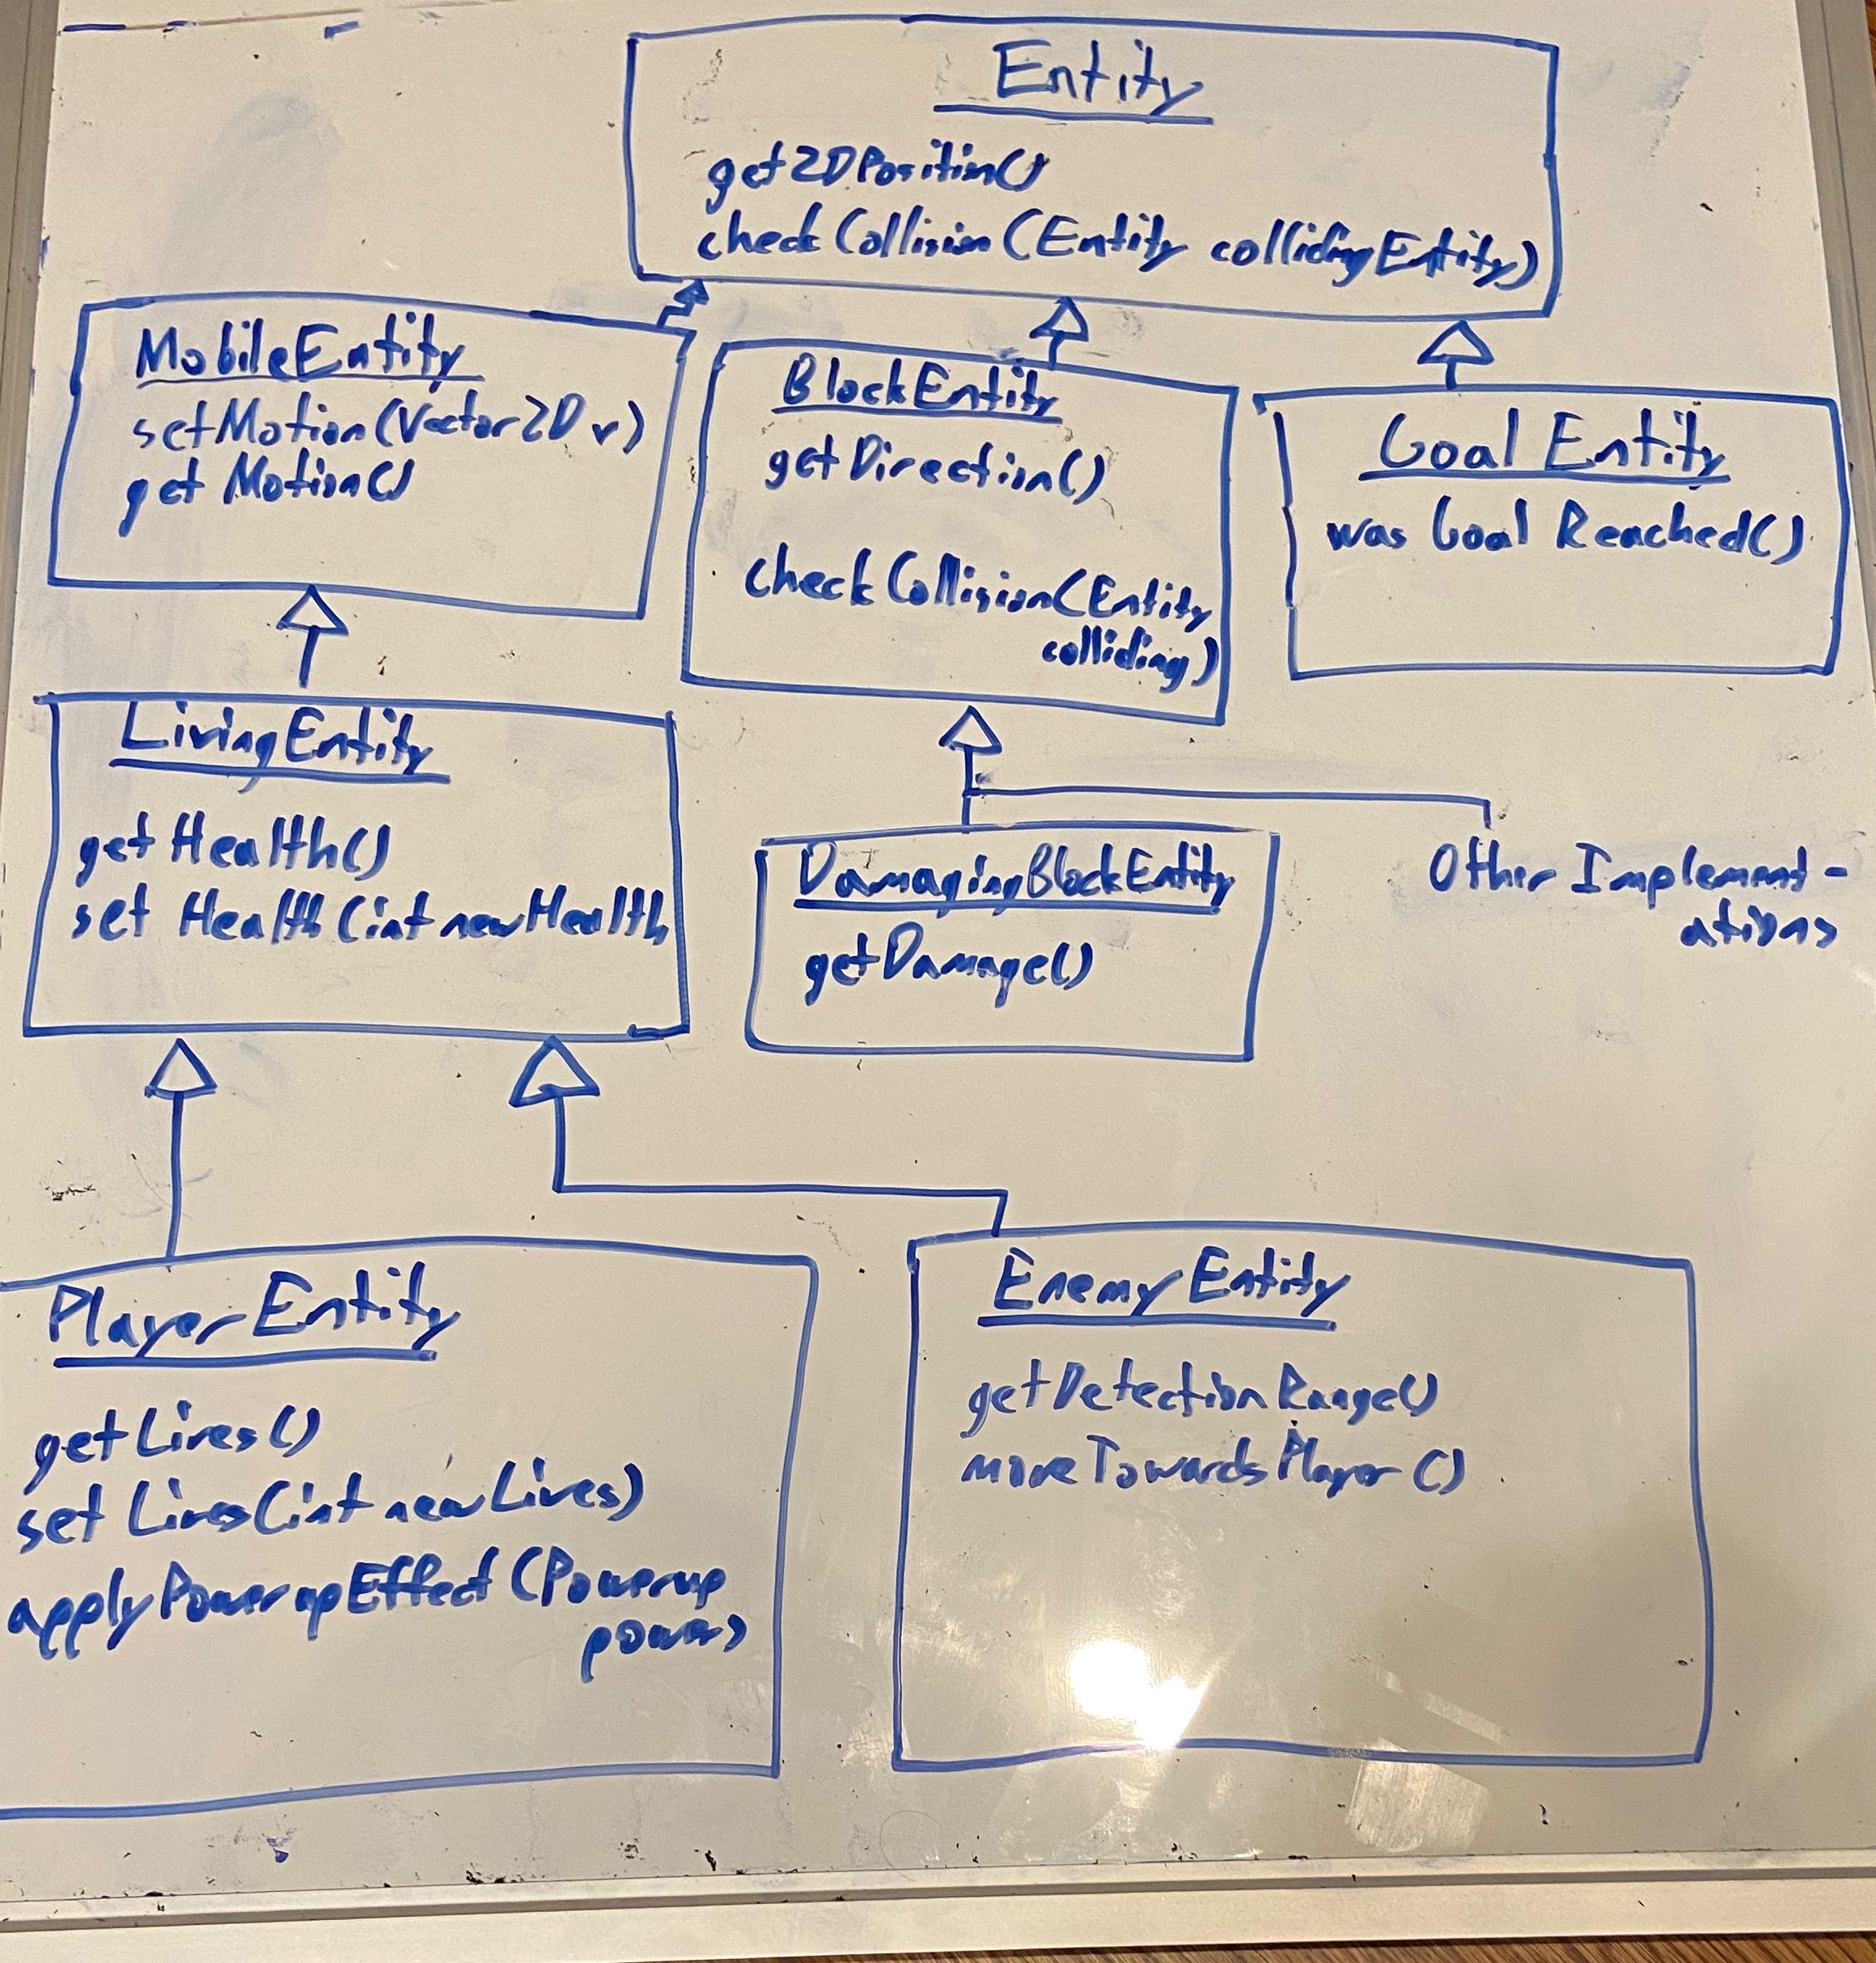 Entity
get2DPosition()
checkCollision(Entity collidingEntity)
MobileEntity
setMotion(Vector2D v)
get Motion()
BlockEntity
getDirection()
checkCollision(Entity
colliding)
Goal Entity
was Goal Reached()
LivingEntity
get Health()
set Health(int newHealth
DamagingBlockEntity
getDamage()
Other Implement-
ations
PlayerEntity
getLives()
set Lives(int newLives)
applyPowerupEffect(Powerup
power)
EnemyEntity
getDetectionRange()
moveTowardsPlayer()